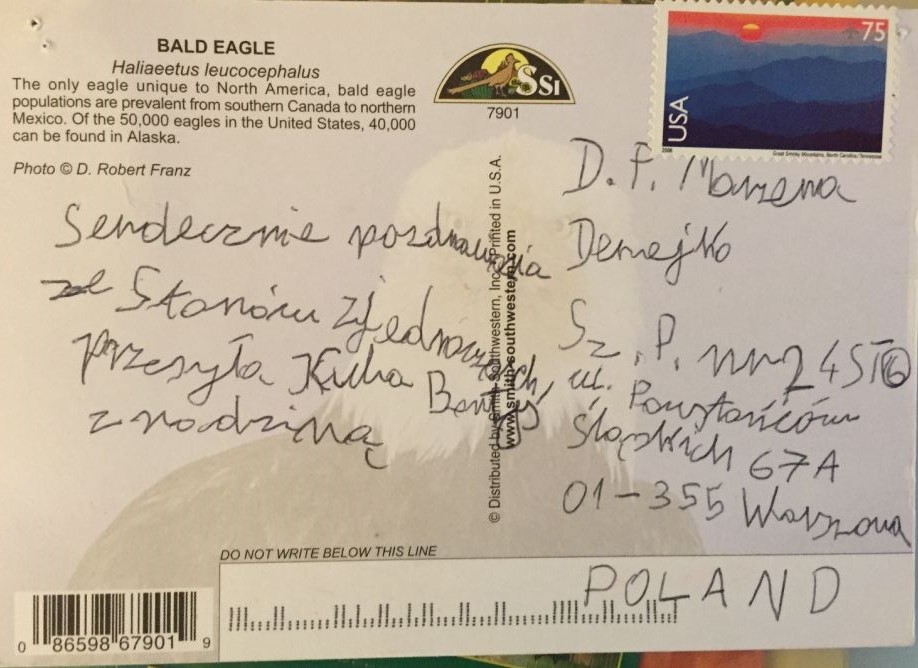 BALD EAGLE
Haliaeetus leucocephalus
The only eagle unique to North America, bald eagle
populations are prevalent from southern Canada to northern
Mexico. Of the 50,000 eagles in the United States, 40,000
can be found in Alaska.
Photo © D. Robert Franz
SSI
7901
75
USA
2006
Great Smoky Mountains, North Carolina/Tennessee
Serdecznie pozdrowienia
ze Stanów Zjednoczonych,
przesyła Kuba
z rodziną
© Distributed by Smith-Southwestern, Inc. Printed in U.S.A.
www.smith-southwestern.com
D. P. Marzena
Demejko
Sz. P. nr 24
ul. Powstańców
Śląskich 67A
01-355 Warszawa
DO NOT WRITE BELOW THIS LINE
POLAND
0 86598 67901 9